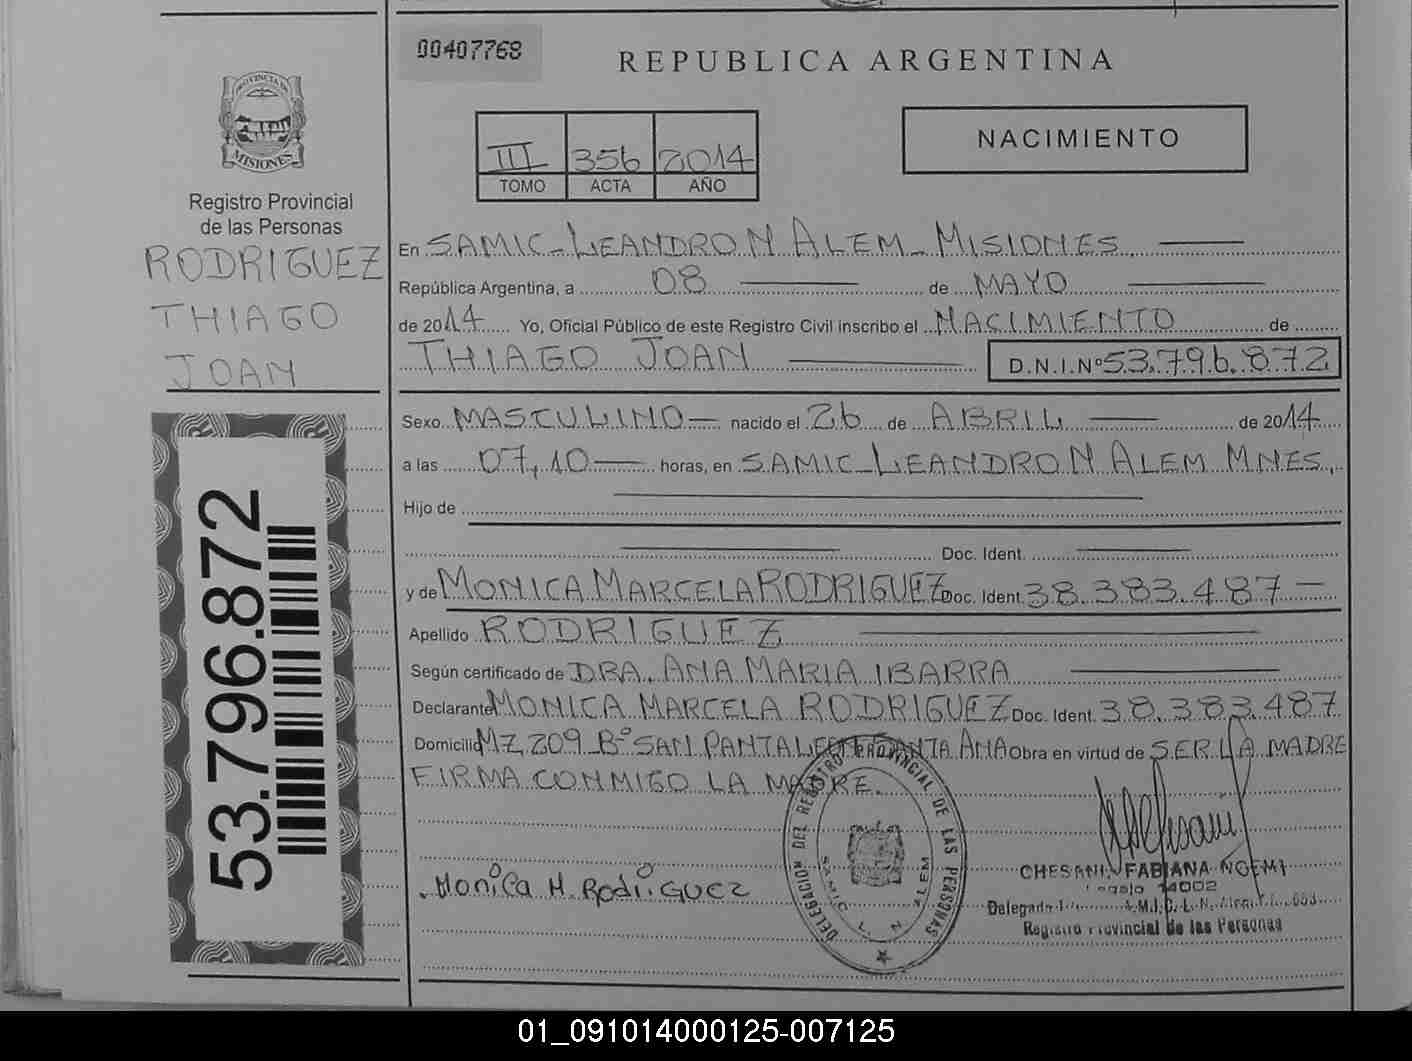 00407768
REPUBLICA ARGENTINA
PROVINCIA DE
MISIONES
Registro Provincial
de las Personas
RODRIGUEZ
THIAGO
JOAN
53.796.872
III 356 2014
TOMO ACTA AÑO
NACIMIENTO
En SAMIC - LEANDRO N ALEM - MISIONES,
República Argentina, a 08 de MAYO
de 2014 Yo, Oficial Público de este Registro Civil inscribo el NACIMIENTO de
THIAGO JOAN D.N.I.Nº 53.796.872
Sexo MASCULINO nacido el 26 de ABRIL de 2014
a las 07,10 horas, en SAMIC - LEANDRO N ALEM MNES,
Hijo de
Doc. Ident.
y de MONICA MARCELA RODRIGUEZ Doc. Ident. 38.383.487
Apellido RODRIGUEZ
Según certificado de DRA. ANA MARIA IBARRA
Declarante MONICA MARCELA RODRIGUEZ Doc. Ident. 38.383.487
Domicilio MZ 209 Bº SAN PANTALEON SANTA ANA Obra en virtud de SER LA MADRE
FIRMA CONMIGO LA MADRE.
Monica M. Rodriguez
DELEGACION DEL REGISTRO PROVINCIAL DE LAS PERSONAS
SAMIC L. N. ALEM
CHESANI, FABIANA NOEMI
Legajo 14002
Registro Provincial de las Personas
01_091014000125-007125